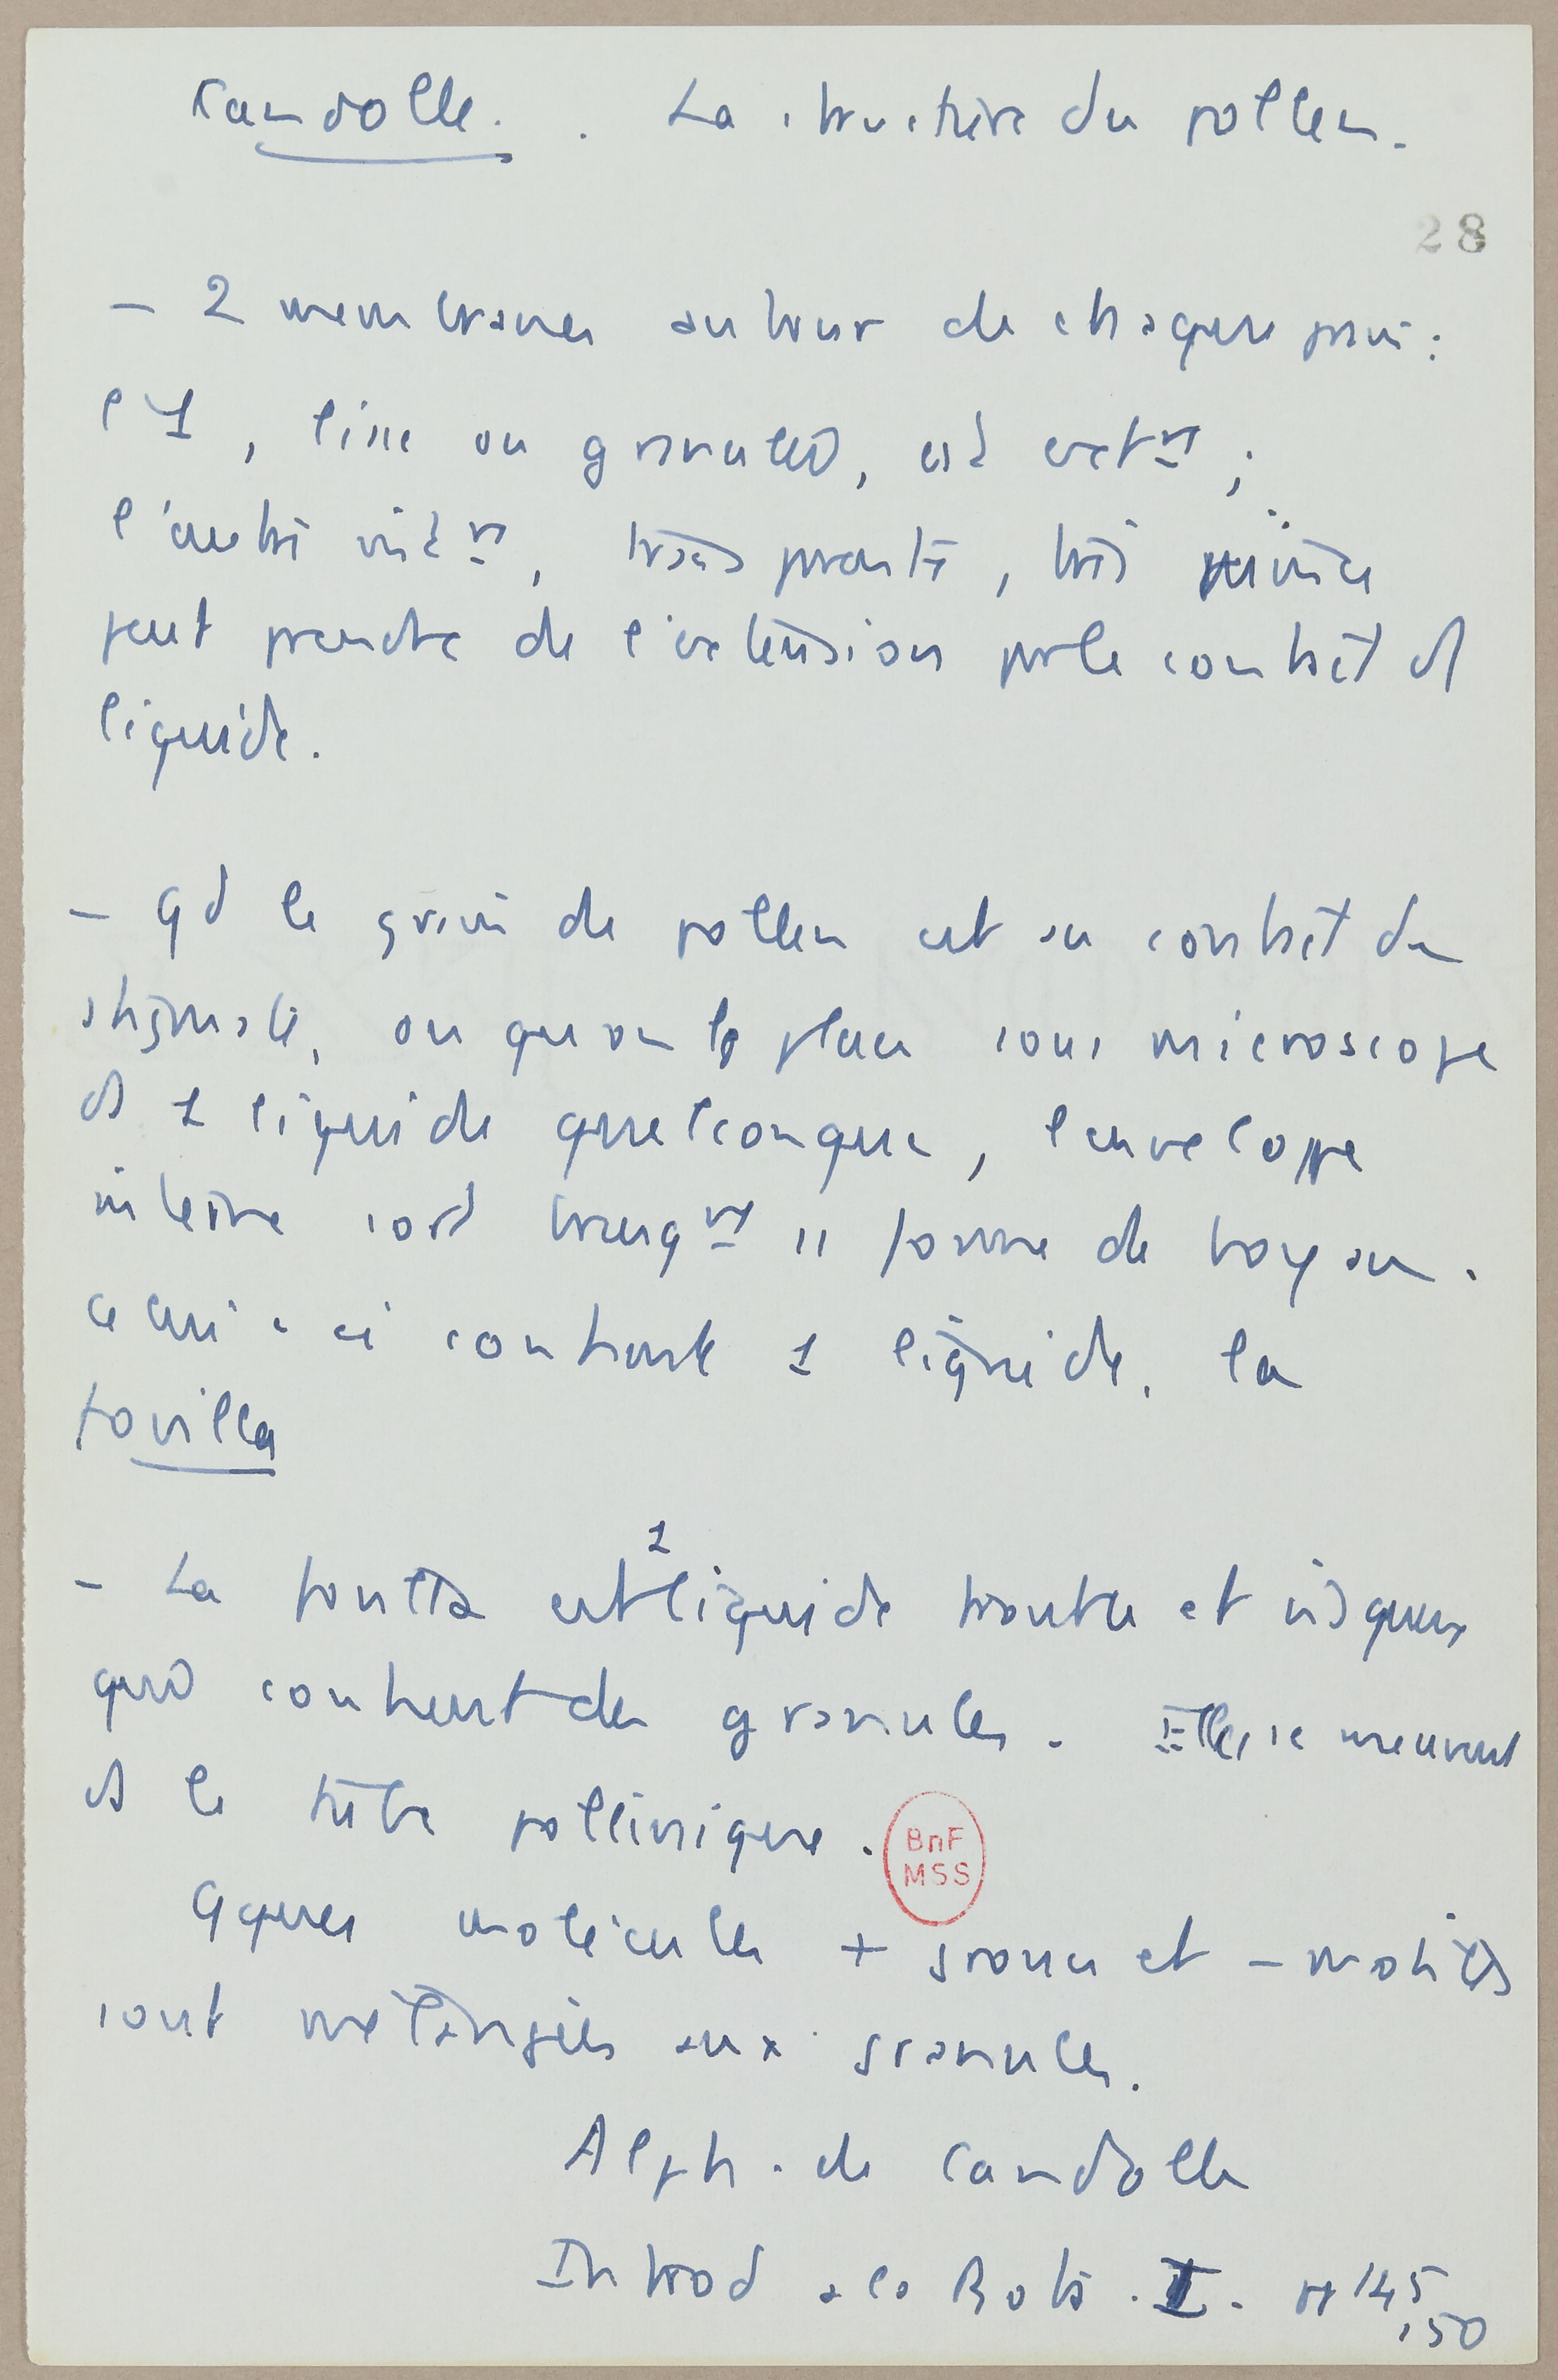 Candolle. . La structure du pollen.
28
– 2 membranes autour de chaque grain :
l'1, lisse ou granulée, est extnt ;
l'autre intnt, transparente, très mince
peut prendre de l'extension par le contact d
liquide.
– qd le grain de pollen est au contact du
stigmate, ou qu'on le place sous microscope
ds 1 liquide quelconque, l'enveloppe
interne sort brusqnt ss forme de boyau.
celui-ci contient 1 liquide, la
fovilla
– La fovilla est 1 liquide trouble et visqueux
qui contient des granules. Elles se meuvent
ds le tube pollinique.
BnF
MSS
Qques molécules + grosses et – mobiles
sont mélangées aux granules.
Alph. de Candolle
Introd a la Bota. I. pp 145
150